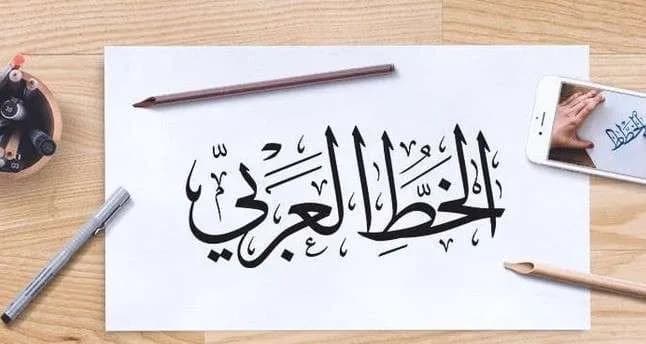 الخَطُّ العَرَبيّ